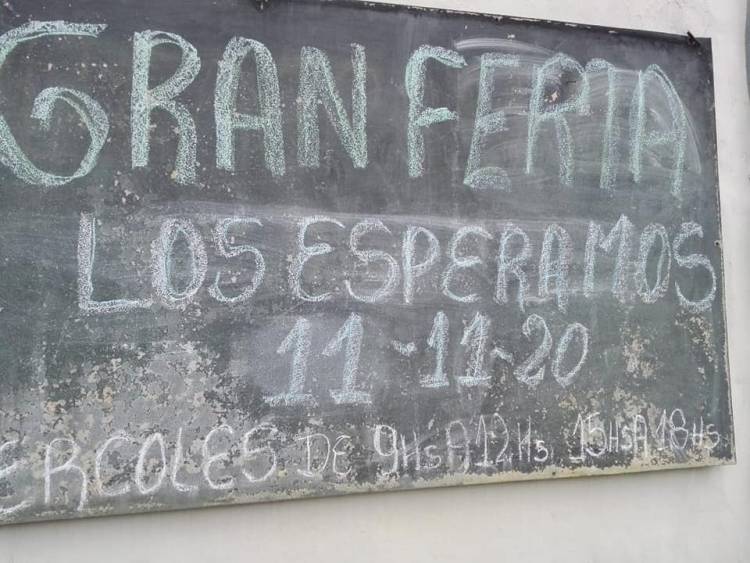 GRAN FERIA
LOS ESPERAMOS
11-11-20
ERCOLES DE 9Hs A 12Hs 15Hs A 18Hs